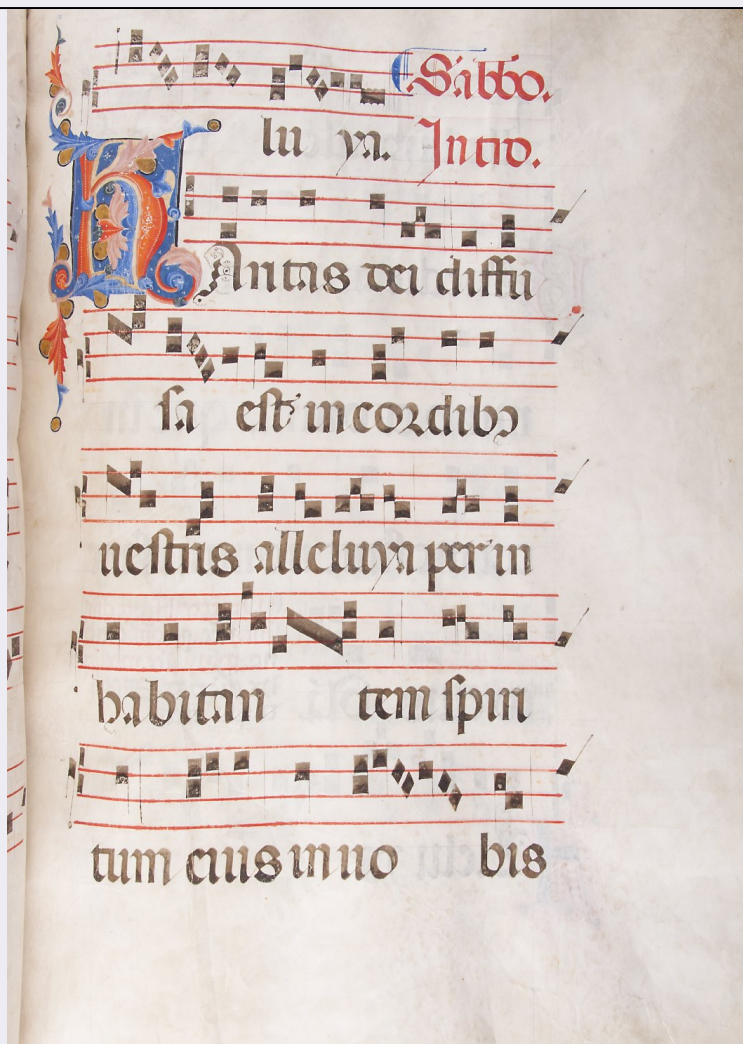 Sabbo.
lu ya. Intro.
KAritas dei diffu
sa est in cordibꝫ
uestris alleluya per in
habitan tem spiri
tum eius in uo bis